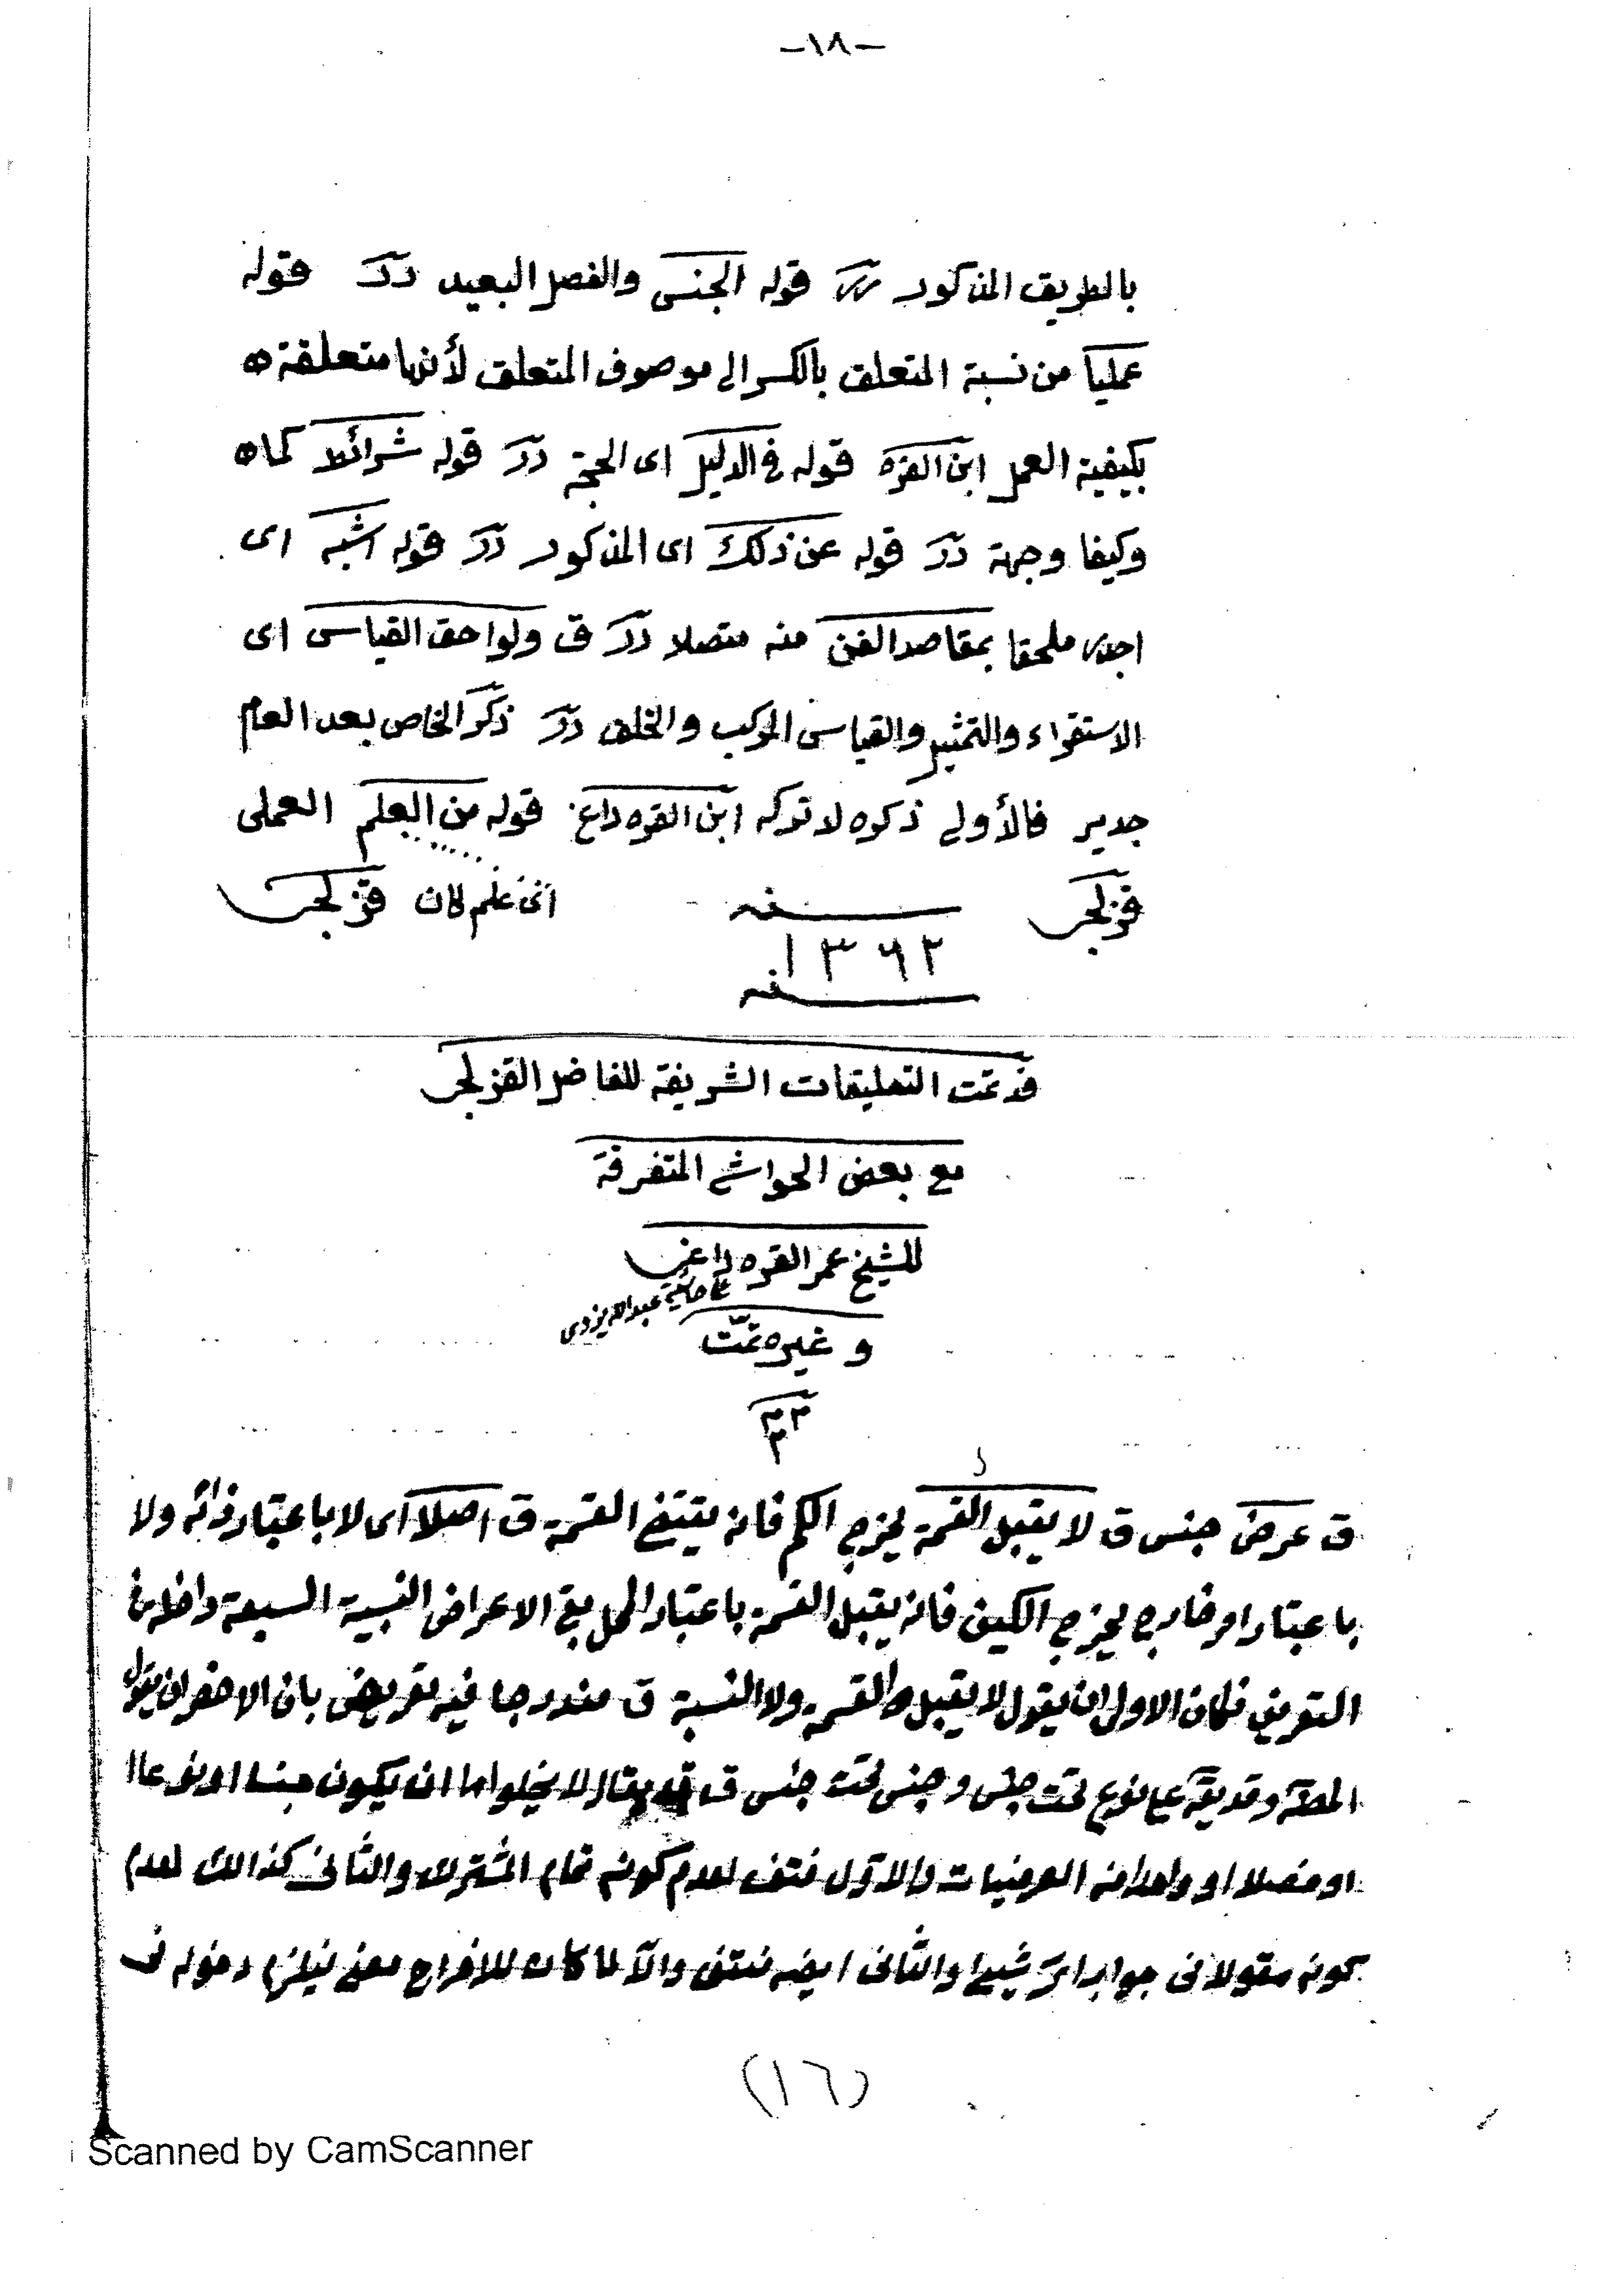 -١٨-
بالطريق المذكور قوله الجنس والفصل البعيد رر قوله
عمليا من نسبة المتعلق بالكسر الى موصوف المتعلق لأنها متعلقة
بكيفية العمل ابن القره قوله في الدليل اى الحجة رر قوله شرائط كما
وكيفا وجهة رر قوله عن ذلك اى المذكور رر قوله اشبه اى
اجدر ملحقا بمقاصد الفن منه متصلا رر ق ولواحق القياس اى
الاستقراء والتمثيل والقياس المركب والخلف رر ذكر الخاص بعد العام
جدير فالأولى ذكره لا تركه ابن القره داغ قوله من العلم العملى
قزلجى سنه اى علم كان قزلجى
١٣٦٢
سنه
قد تمت التعليقات الشريفة للفاضل القزلجى
مع بعض الحواشى المتفرقة
للشيخ عمر القره داغى
على حاشية عبدالله يزدى
وغيره تمّت
ق عرض جنس ق لا يقبل القسمة يخرج الكم فانه يقتضى القسمة ق اصلا اى لا باعتبار ذاته ولا
باعتبار امر خارج يخرج الكيف فانه يقبل القسمة باعتبار المحل بقى الاعراض النسبية السبعة داخلا فى
التعريف فكان الاولى ان يقول لا يقبل القسمة ولا النسبة ق مندرجا فيه تعريض بان الاخصر ان يقول
وقد يق على نوع تحت جنس وجنس تحت جنس ق قد يقال لا يخلوا اما ان يكون جنسا او نوعا
او فصلا او واحدا من العرضيات والاوّل منتف لعدم كونه تمام المشترك والثانى كذالك لعدم
كونه مقولا فى جواب اى شيئ والثانى ايضا منتف والّا لما كان للاخراج معنى فيلزم دخوله فى
(١٦)
Scanned by CamScanner